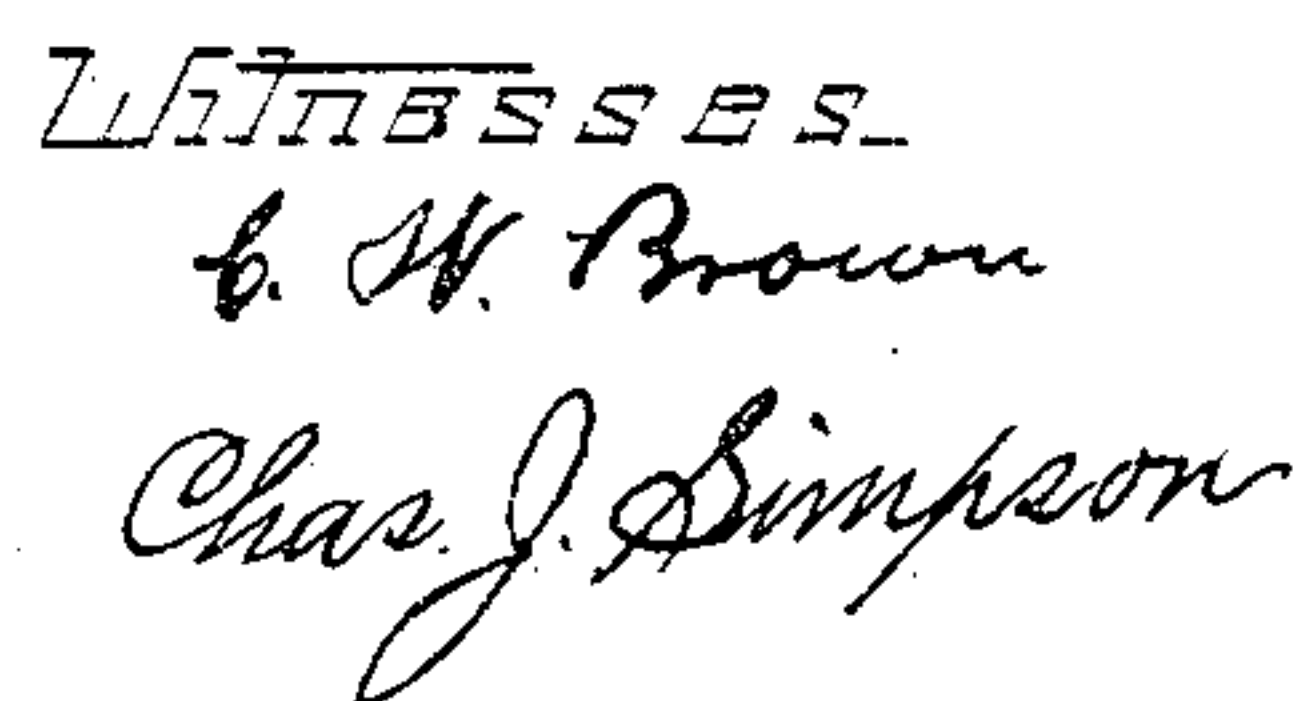 Witnesses_
C. W. Brown
Chas. J. Simpson